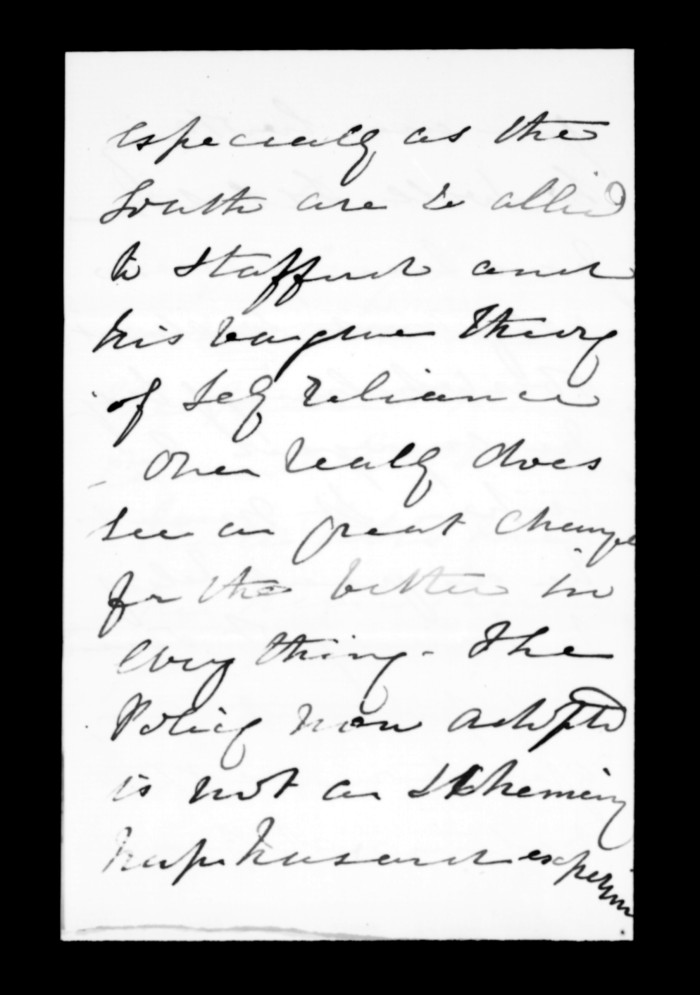 especially as the
South are so allied
to Stafford and
his vague theory
of Self reliance
- One really does
see a great change
for the better in
every thing - The
Policy now adopted
is not a scheming
hap hazard experim